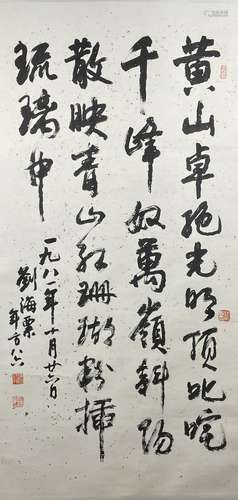 黄山卓绝光明顶叱咤
千峰奴萬嶺斜陽
散映青山红珊瑚粉插
琉璃中
一九八一年十月廿六日
劉海粟
年方八六